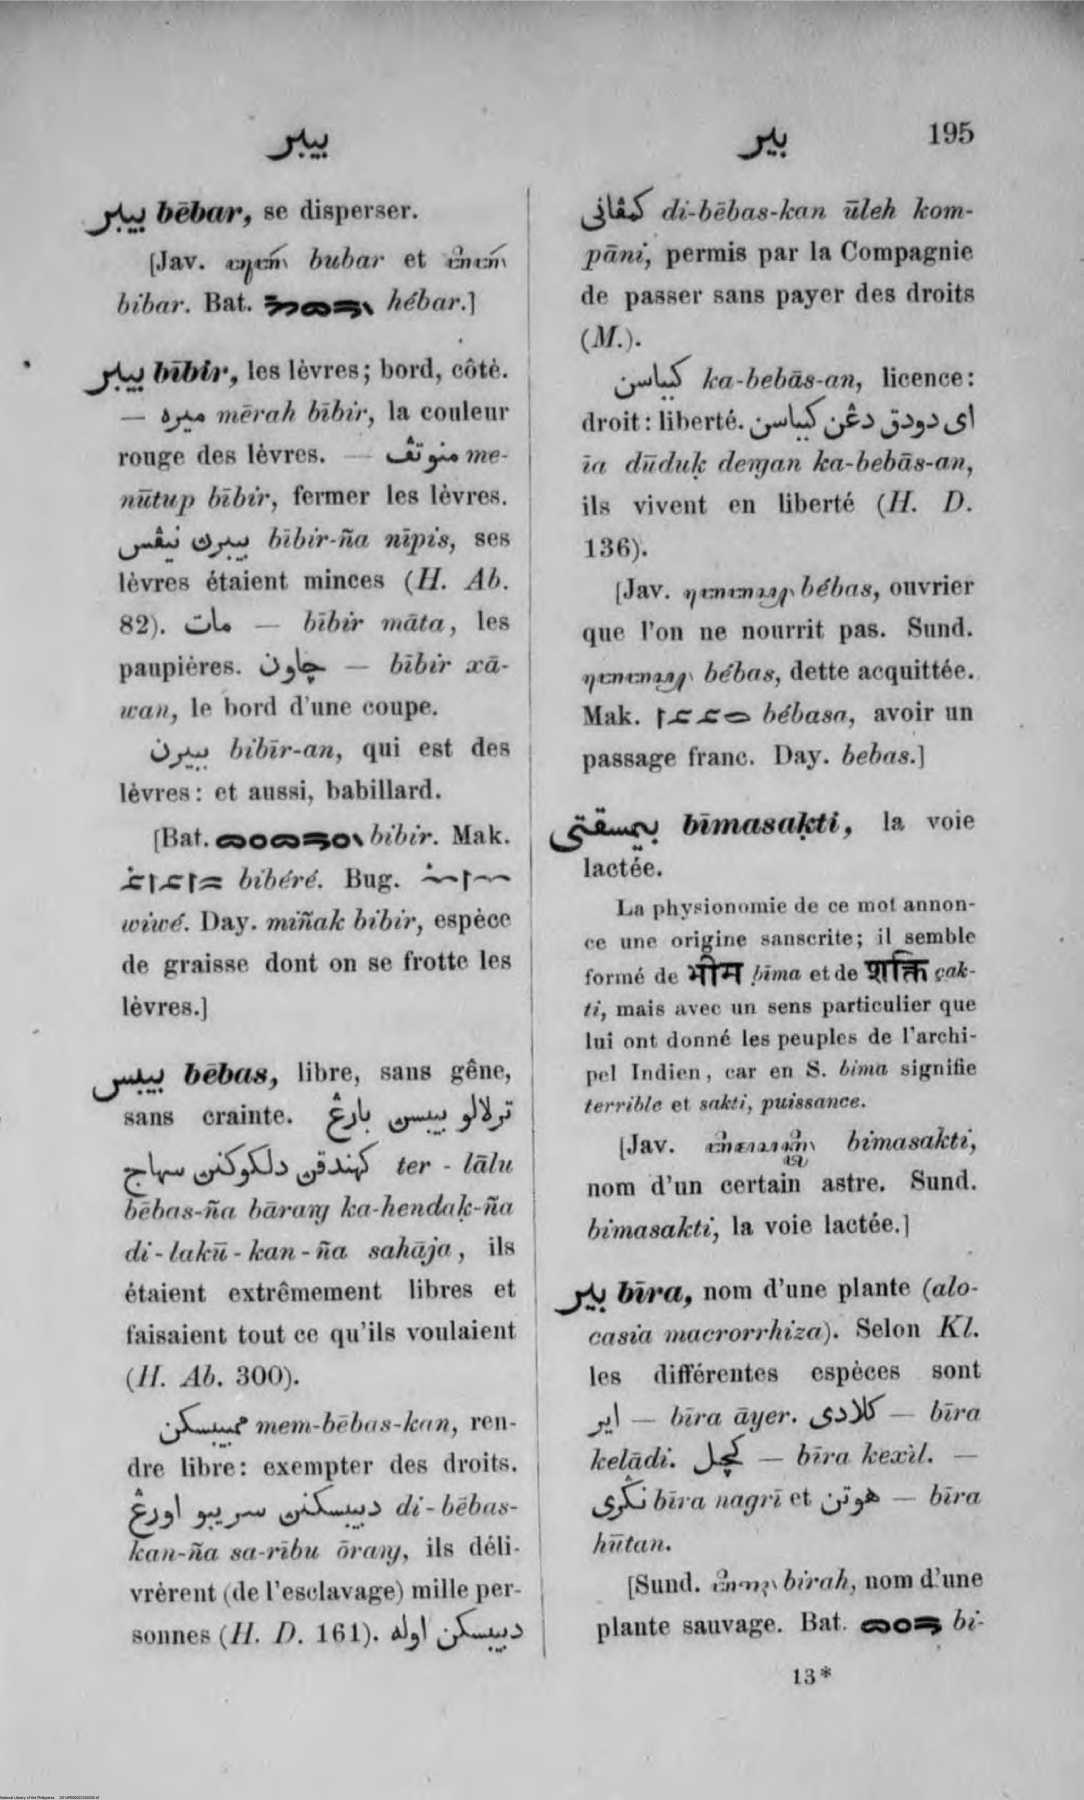 بيبر
بير
195
بيبر bēbar, se disperser.
[Jav. bubar et
bibar. Bat. hébar.]
بيبر bībir, les lèvres; bord, côté.
— ميره mērah bībir, la couleur
rouge des lèvres. — منوتڤ me-
nūtup bībir, fermer les lèvres.
بيبرڽ نيڤس bībir-ña nīpis, ses
lèvres étaient minces (H. Ab.
82). مات — bībir māta, les
paupières. چاون — bībir xā-
wan, le bord d'une coupe.
بيبيرن bibīr-an, qui est des
lèvres: et aussi, babillard.
[Bat. bibir. Mak.
bibéré. Bug.
wiwé. Day. miñak bibir, espèce
de graisse dont on se frotte les
lèvres.]
بيبس bēbas, libre, sans gêne,
sans crainte. ترلالو بيبسن بارڠ
كهندقن دلكوكنن سهاج ter-lālu
bēbas-ña bārang ka-hendaḳ-ña
di-lakū-kan-ña sahāja, ils
étaient extrêmement libres et
faisaient tout ce qu'ils voulaient
(H. Ab. 300).
ممبيبسكن mem-bēbas-kan, ren-
dre libre: exempter des droits.
دبيبسكنن سريبو اورڠ di-bēbas-
kan-ña sa-rību ōrang, ils déli-
vrèrent (de l'esclavage) mille per-
sonnes (H. D. 161). دبيبسكن اوله
كمڤانى di-bēbas-kan ūleh kom-
pāni, permis par la Compagnie
de passer sans payer des droits
(M.).
كبباسن ka-bebās-an, licence:
droit: liberté. اى دودق دڠن كبباسن
īa dūduḳ dengan ka-bebās-an,
ils vivent en liberté (H. D.
136).
[Jav. bébas, ouvrier
que l'on ne nourrit pas. Sund.
bébas, dette acquittée.
Mak. bébasa, avoir un
passage franc. Day. bebas.]
بيمسقتى bīmasaḳti, la voie
lactée.
La physionomie de ce mot annon-
ce une origine sanscrite; il semble
formé de भीम ḅīma et de शक्ति çak-
ti, mais avec un sens particulier que
lui ont donné les peuples de l'archi-
pel Indien, car en S. bima signifie
terrible et sakti, puissance.
[Jav. bimasakti,
nom d'un certain astre. Sund.
bimasakti, la voie lactée.]
بير bīra, nom d'une plante (alo-
casia macrorrhiza). Selon Kl.
les différentes espèces sont
اير — bīra āyer. كلادى — bīra
kelādi. كچل — bīra kexil. —
نڬرى bīra nagrī et هوتن — bīra
hūtan.
[Sund. birah, nom d'une
plante sauvage. Bat. bi-
13*